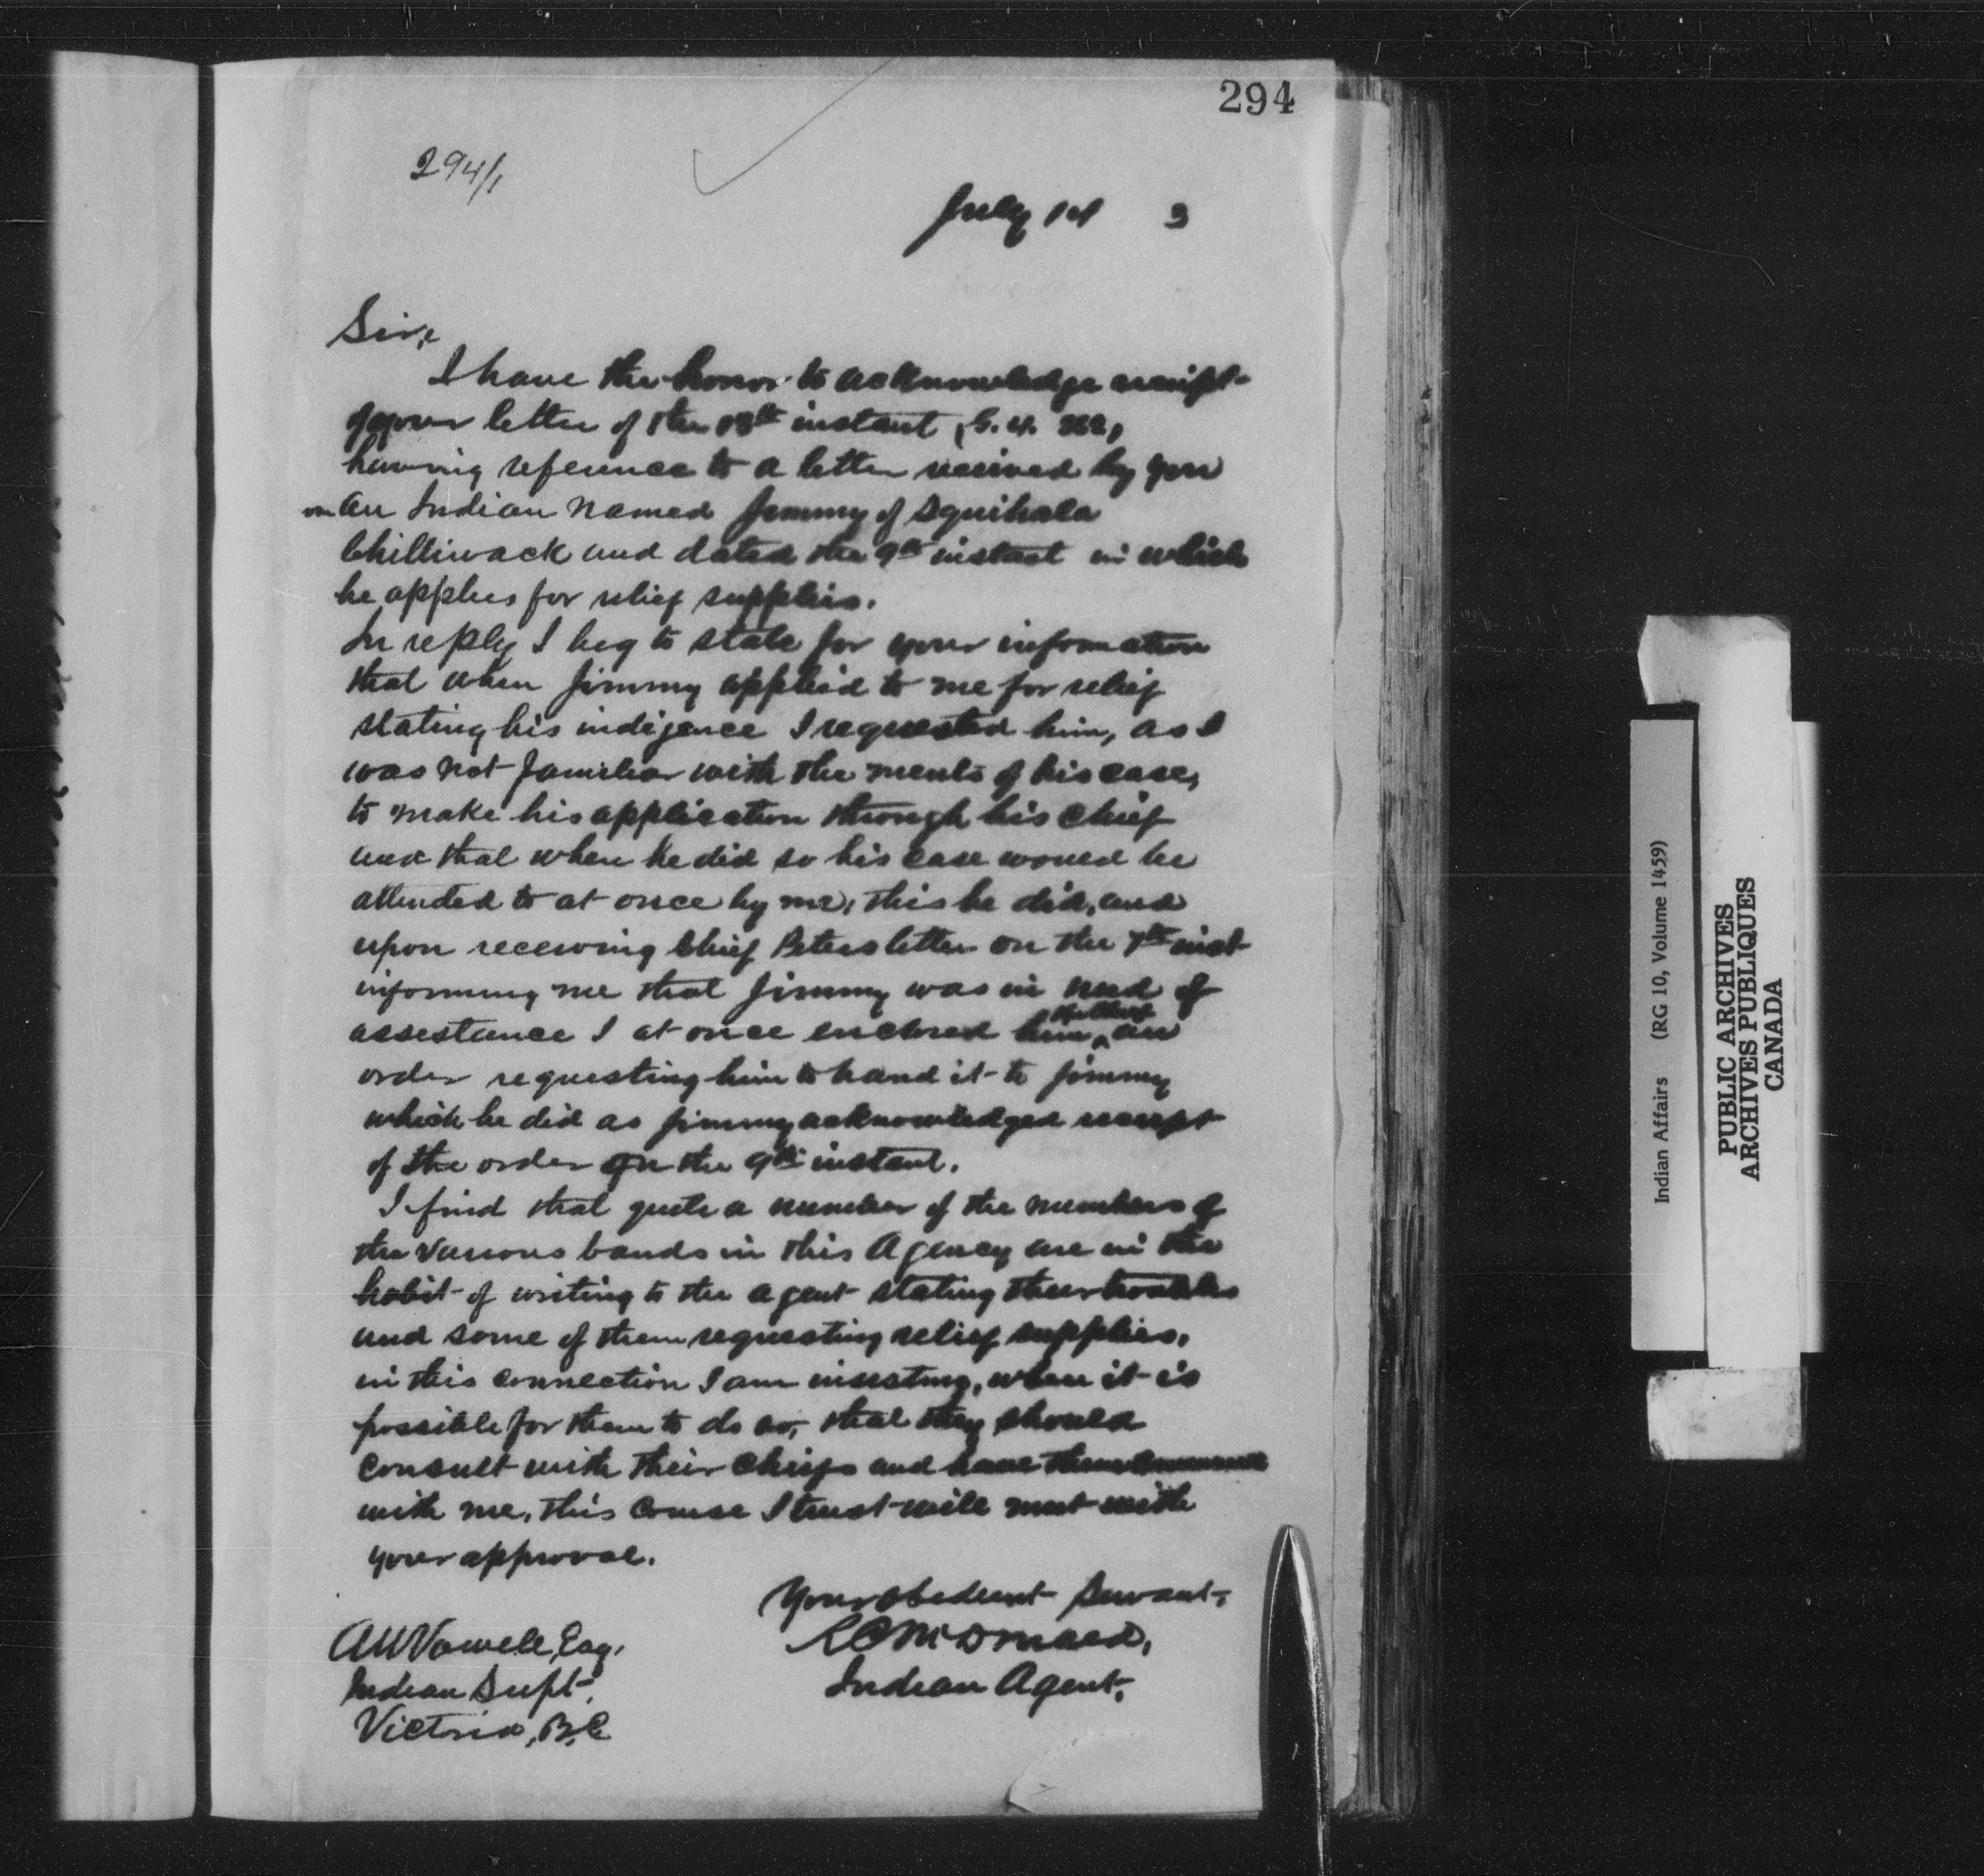 294
294/1
July 14 3
Sir,
I have the honor to acknowledge receipt
of your letter of the 13th instant,
having reference to a letter received by you
an Indian named Jimmy of Squihala
Chilliwack and dated the 9th instant in which
he applies for relief supplies.
In reply I beg to state for your information
that when Jimmy applied to me for relief
stating his indigence I requested him, as I
was not familiar with the merits of his case,
to make his application through his Chief
and that when he did so his case would be
attended to at once by me, this he did, and
upon receiving Chief Peters letter on the 7th inst
informing me that Jimmy was in need of
assistance I at once enclosed him an
order requesting him to hand it to Jimmy
which he did as Jimmy acknowledged receipt
of the order on the 9th instant.
I find that quite a number of the members of
the various bands in this Agency are in the
habit of writing to the agent stating their troubles
and some of them requesting relief supplies,
in this connection I am insisting, when it is
possible for them to do so, that they should
consult with their Chiefs and have them communicate
with me, this course I trust will meet with
your approval.
Your obedient Servant,
R C McDonald,
Indian Agent,
A W Vowell, Esq.
Indian Supt.
Victoria, B.C
Indian Affairs (RG 10, Volume 1459)
PUBLIC ARCHIVES
ARCHIVES PUBLIQUES
CANADA